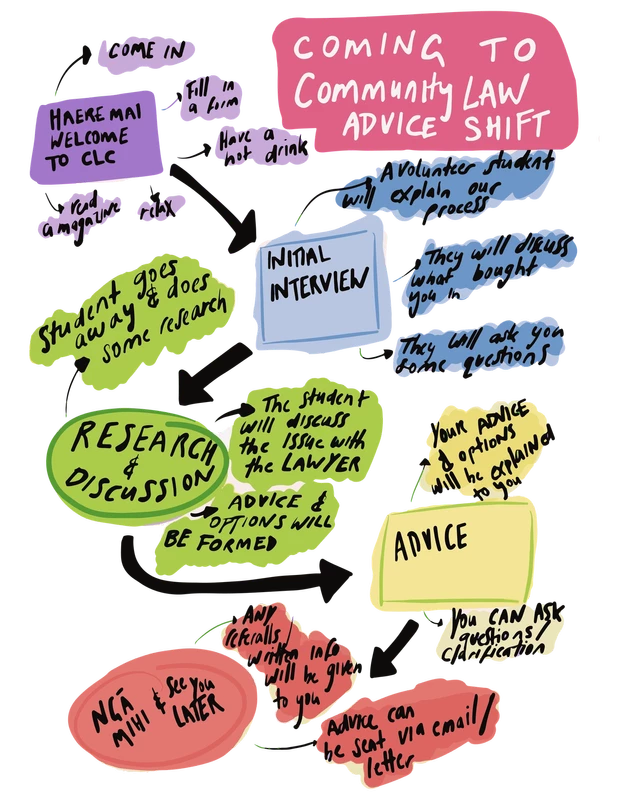 COMING TO
Community LAW
ADVICE SHIFT
COME IN
HAERE MAI
WELCOME
TO CLC
Fill in
a form
Have a
hot drink
read
a magazine
relax
INITIAL
INTERVIEW
A volunteer student
will explain our
process
They will discuss
what bought
you in
They will ask you
some questions
Student goes
away & does
some research
RESEARCH
&
DISCUSSION
The student
will discuss
the issue with
the LAWYER
ADVICE &
OPTIONS WILL
BE FORMED
ADVICE
Your ADVICE
& options
will be explained
to you
You CAN ASK
questions/
clarification
NGĀ
MIHI & See you
LATER
Any
referalls/
written info
will be given
to you
Advice can
be sent via email/
letter